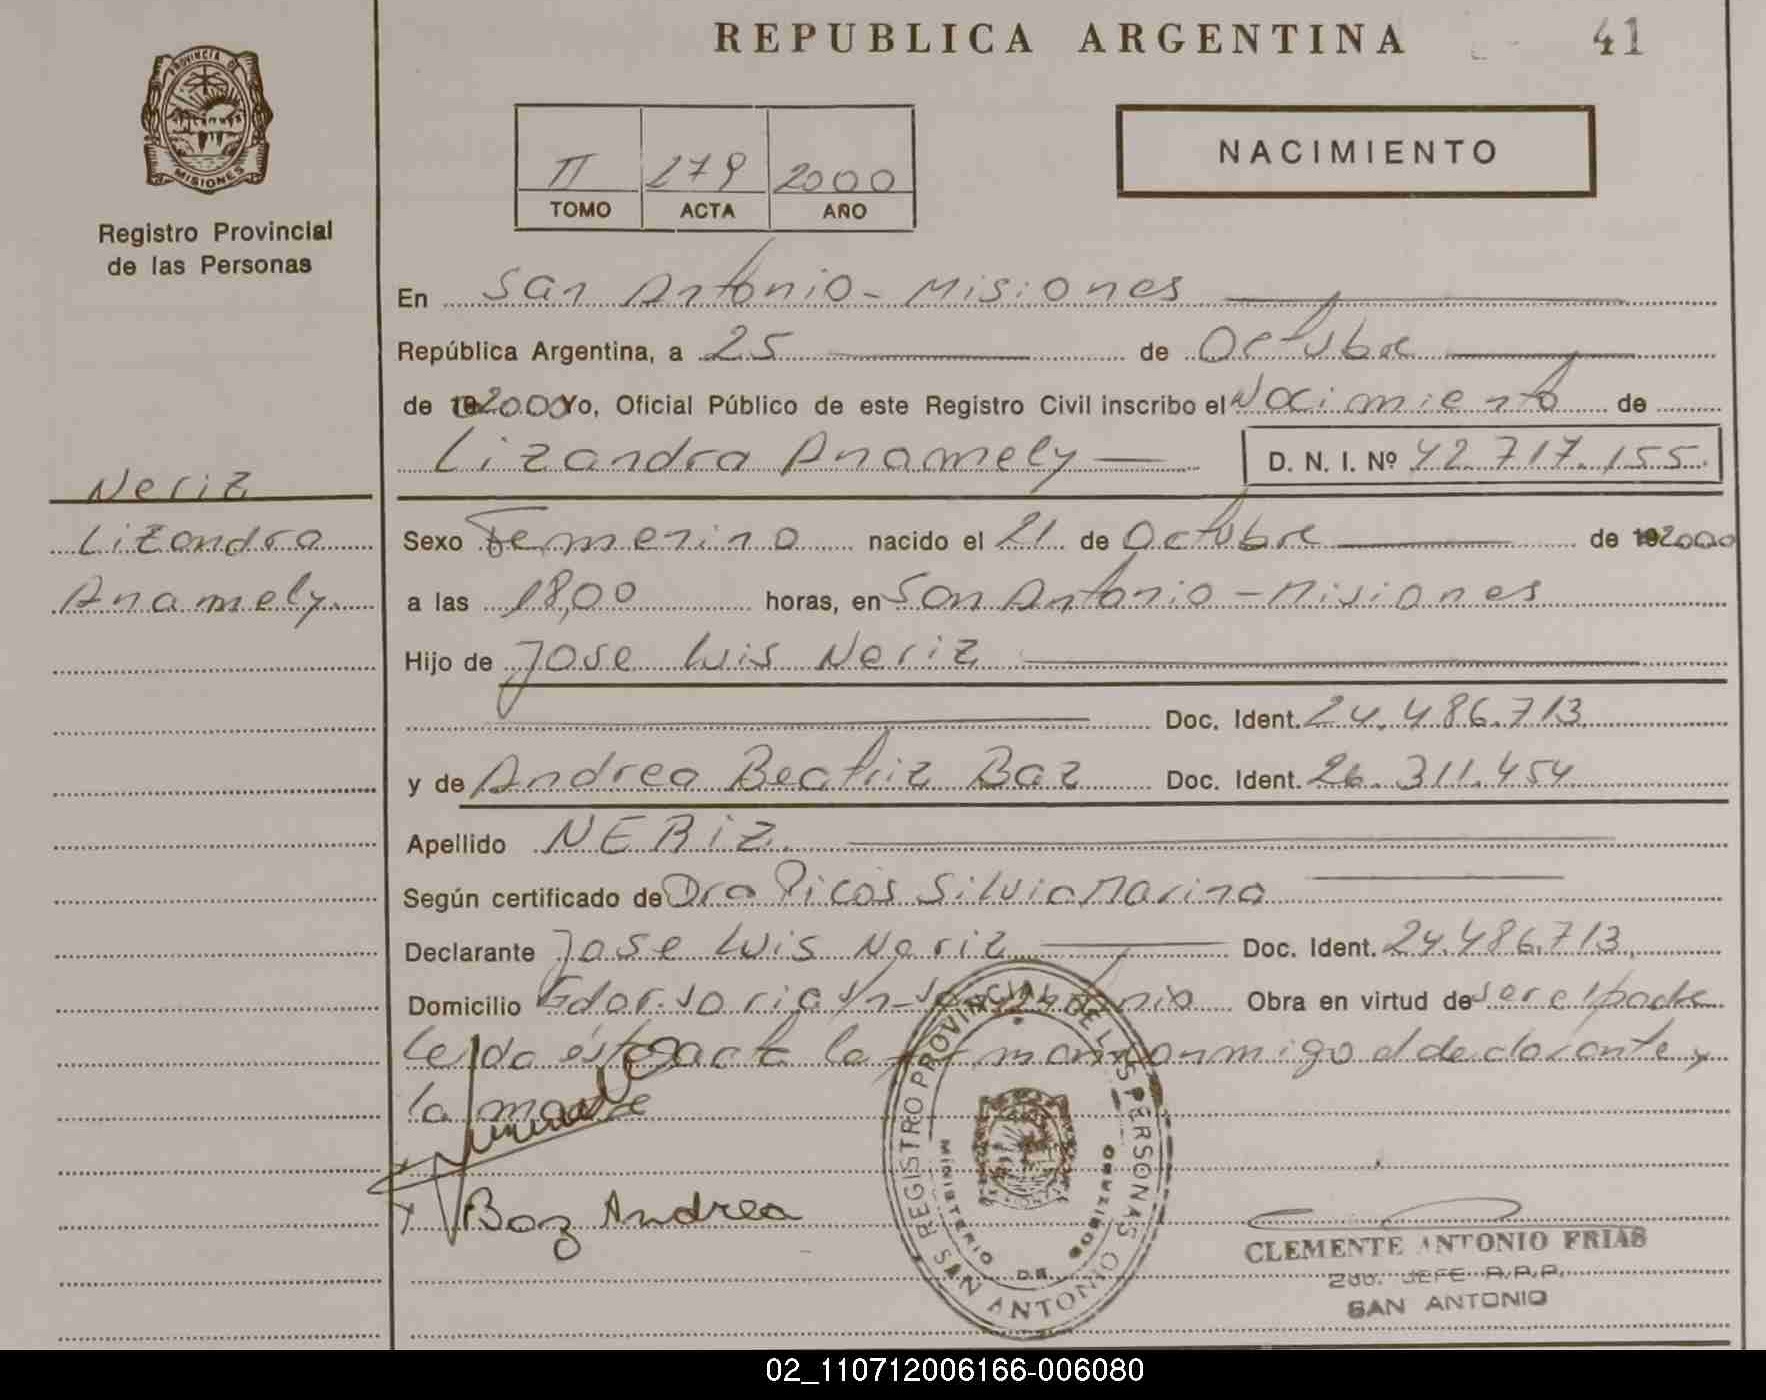 REPUBLICA ARGENTINA
41
PROVINCIA DE
MISIONES
Registro Provincial
de las Personas
II 279 2000
TOMO ACTA AÑO
NACIMIENTO
En San Antonio - Misiones
República Argentina, a 25 de Octubre
de 2000 Yo, Oficial Público de este Registro Civil inscribo el Nacimiento de
Lizandra Anamely D. N. I. Nº 42.717.155.
Neriz
Lizandra
Anamely.
Sexo Femenino nacido el 21 de Octubre de 2000
a las 18,00 horas, en San Antonio - Misiones
Hijo de Jose Luis Neriz
Doc. Ident. 24.486.713
y de Andrea Beatriz Baz Doc. Ident. 26.311.454
Apellido NERIZ.
Según certificado de Dra Picos Silvia Marina
Declarante Jose Luis Neriz Doc. Ident. 24.486.713
Domicilio Gdor. S/n - San Antonio Obra en virtud de ser el padre
Leida ésta acta la firman conmigo el declarante y
la madre
Baz Andrea
REGISTRO PROVINCIAL DE LAS PERSONAS
MINISTERIO DE GOBIERNO
SAN ANTONIO
CLEMENTE ANTONIO FRIAS
2do. JEFE R.P.P.
SAN ANTONIO
02_110712006166-006080